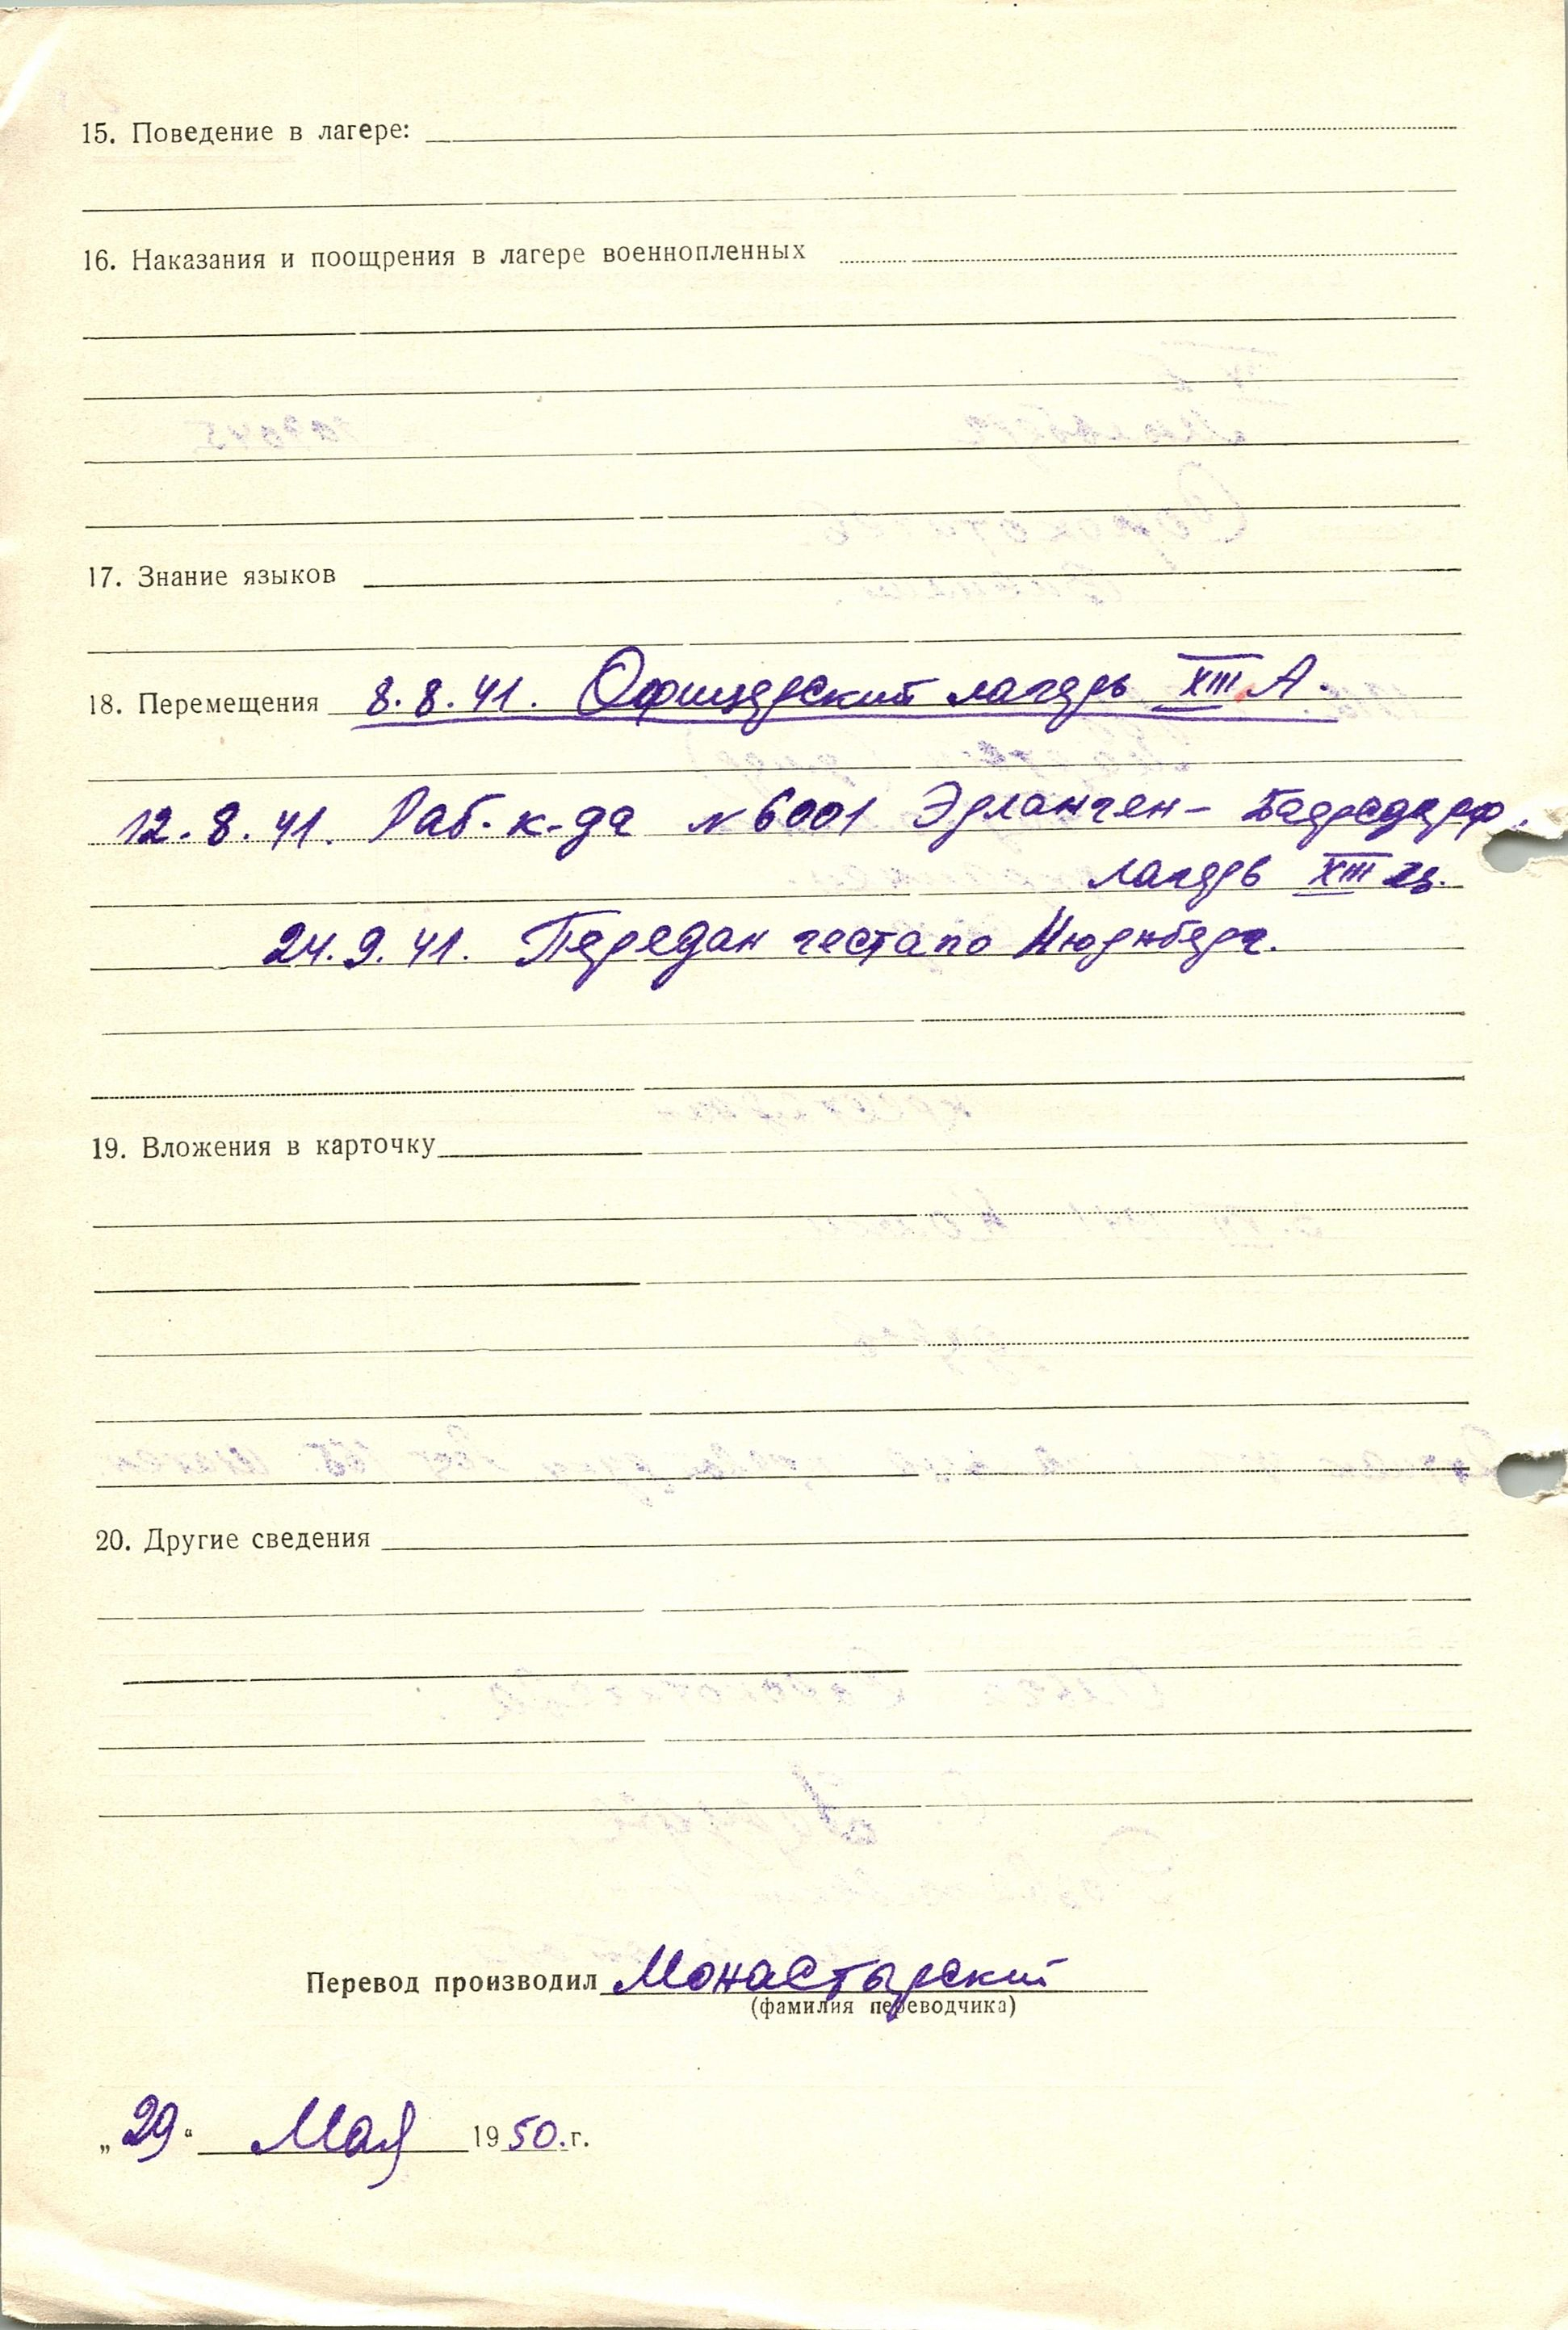 15. Поведение в лагере:
16. Наказания и поощрения в лагере военнопленных
17. Знание языков
18. Перемещения 8.8.41. Офицерский лагерь XIII А.
12.8.41. Раб. к-да № 6001 Эрланген-
лагерь XIII
24.9.41. Передан гестапо Нюрнберг.
19. Вложения в карточку
20. Другие сведения
Перевод производил Монастырский
(фамилия переводчика)
„29“ Мая 1950. г.